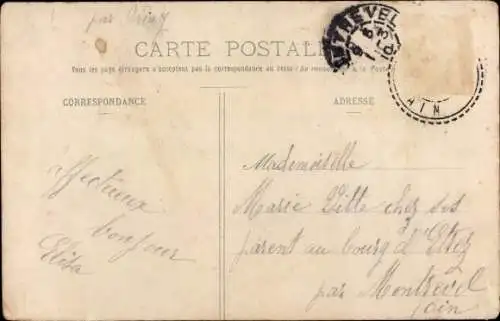 par
CARTE POSTALE
Tous les pays étrangers n'acceptent pas la correspondance au recto
CORRESPONDANCE
ADRESSE
AIN
Affectueux
bonjour
Elisa
Mademoiselle
Marie Ville chez ses
parent au bourg d'
par Montrevel
ain